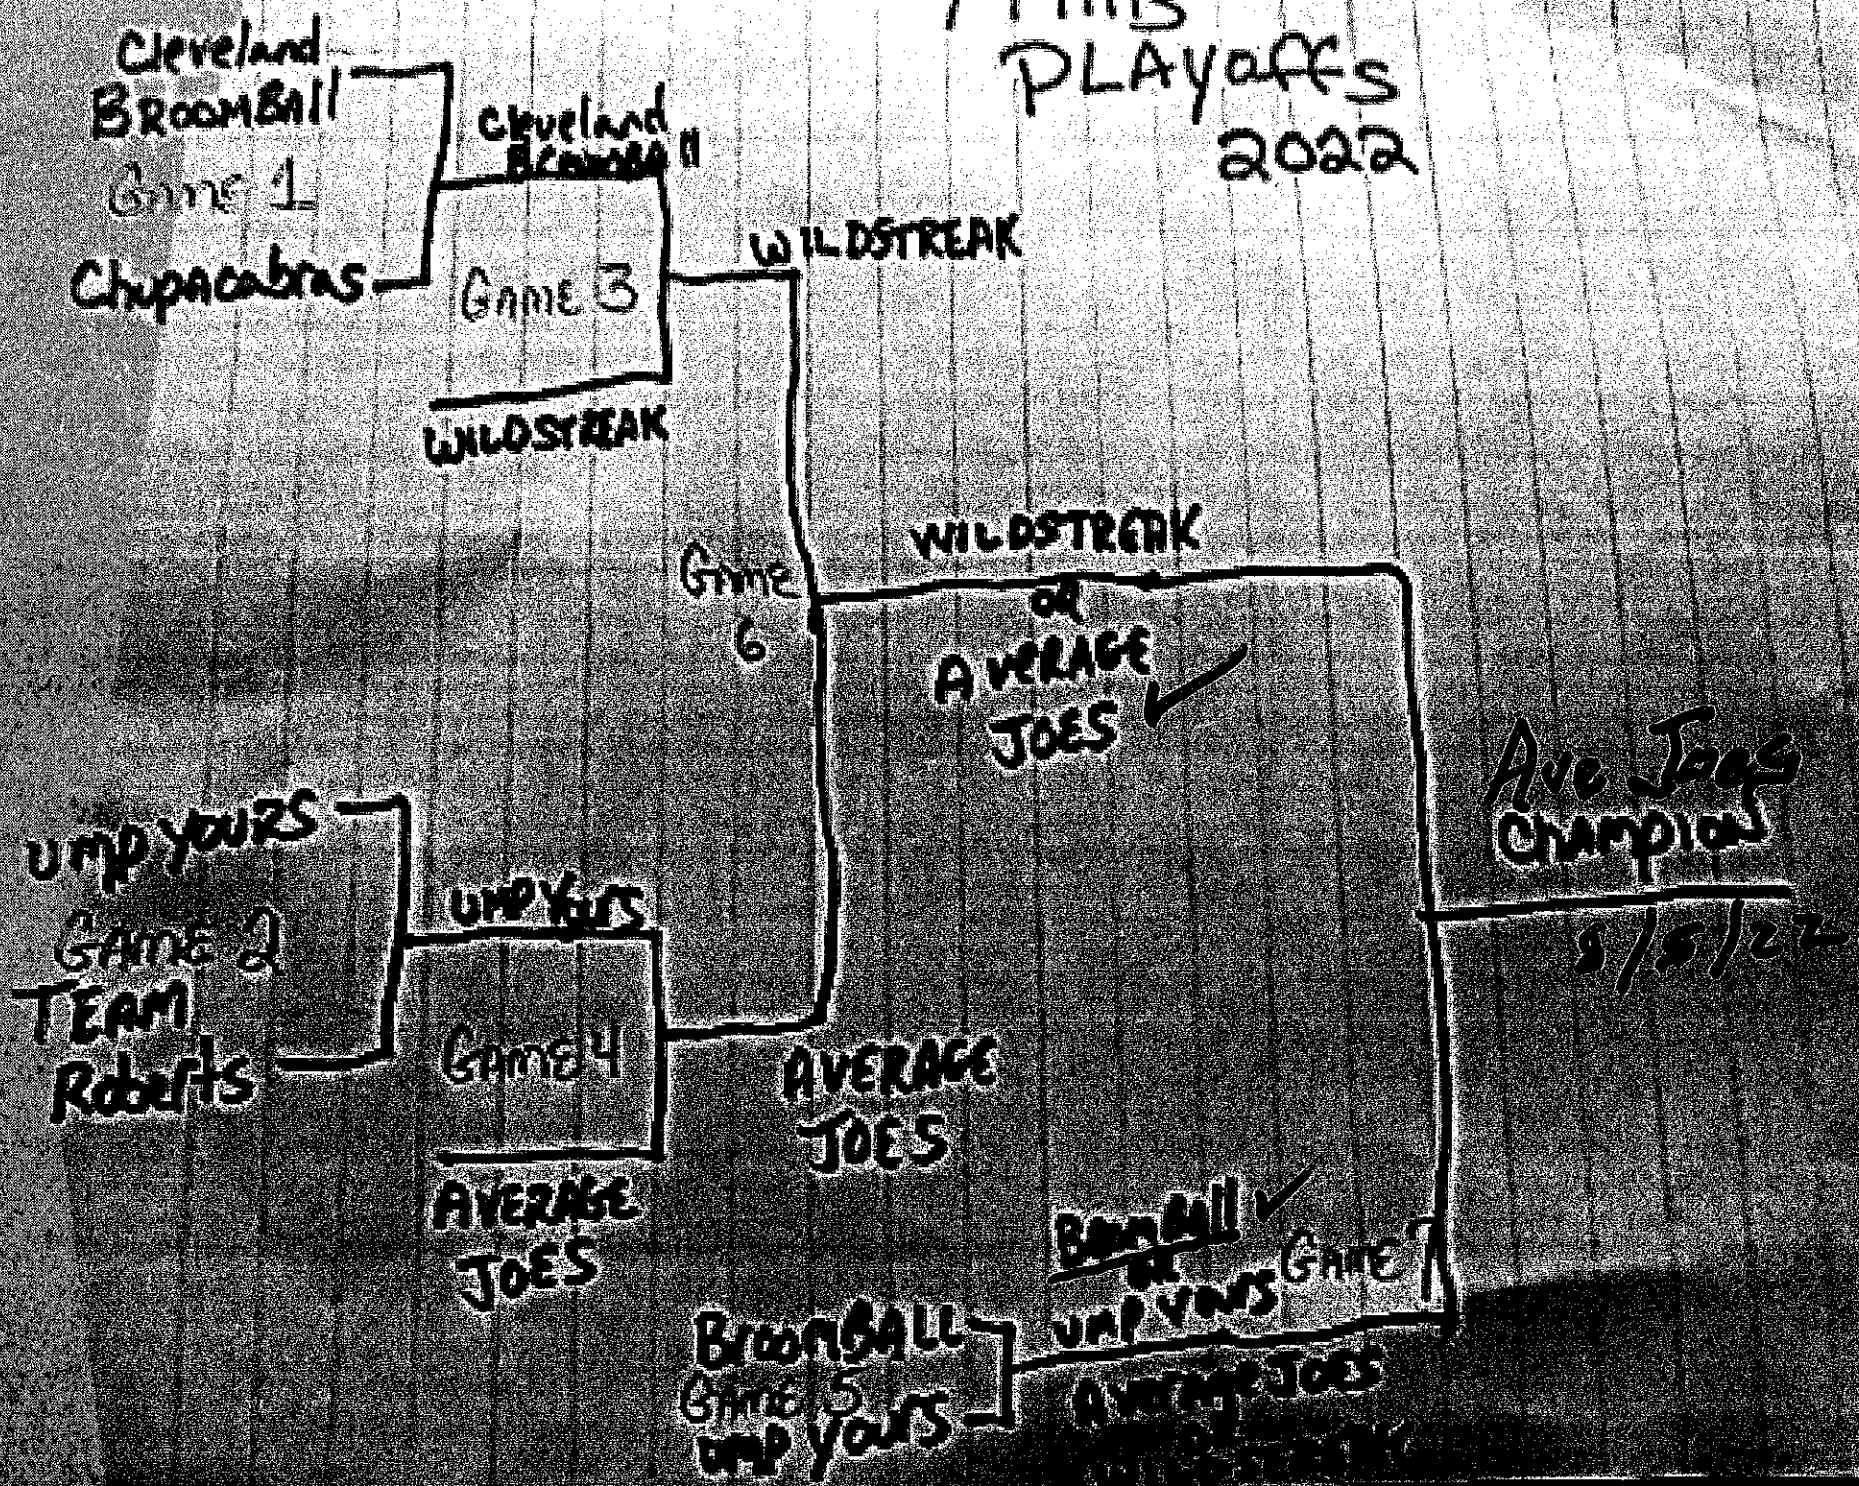 PLAyoffs
2022
Cleveland
BROOMBAll
Game 1
ChupAcabras
Cleveland
GAME 3
WILDSTREAK
WILDSTREAK
Game
6
WILDSTREAK
OR
AVERAGE
JOES
UMP YOURS
GAME 2
TEAM
Roberts
UMP YOURS
GAME 4
AVERAGE
JOES
AVERAGE
JOES
Ave Joes
CHAMPION
8/5/22
BROOMBALL
GAME 5
UMP YOURS
BROOMBAll
OR
UMP YOURS
GAME 7
AVERAGE JOES